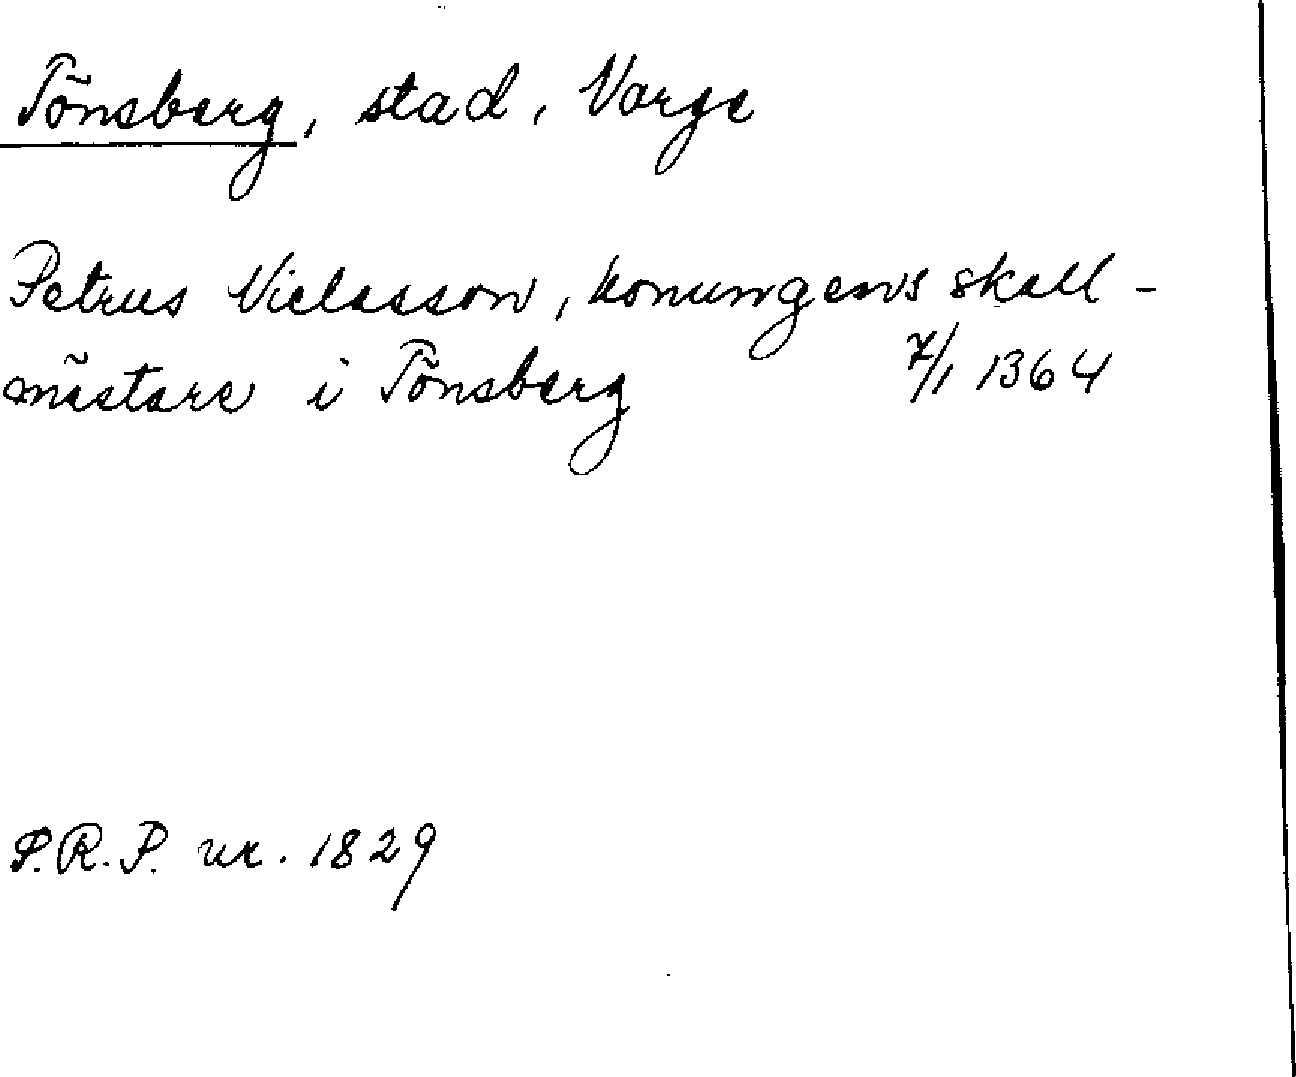 Tönsberg, stad, Norge
Petrus Nielsson, konungens skall-
mästare i Tönsberg 7/1 1364
S.R.P. nr. 1829